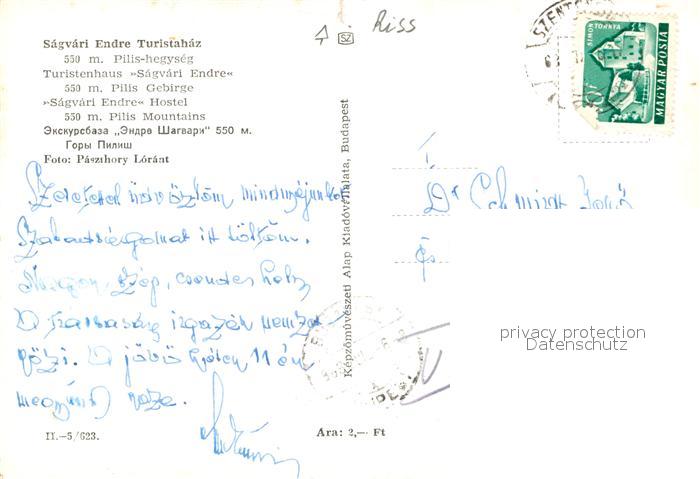 Riss
SZENT
SIMON TORNYA
MAGYAR POSTA
Ságvári Endre Turistaház
550 m. Pilis-hegység
Turistenhaus »Ságvári Endre«
550 m. Pilis Gebirge
»Ságvári Endre« Hostel
550 m. Pilis Mountains
Экскурсбаза „Эндрэ Шагвари" 550 м.
Горы Пилиш
Foto: Pászthory Lóránt
Szeretettel üdvözlöm mindnyájunkat
Szabadságomat itt töltöm.
Nagyon szép, csendes hely
A társaság igazán nemzet
közi. A jövő héten 11 én
megyünk haza.
II.—5/623.
Ara: 2,— Ft
Képzőművészeti Alap Kiadóvállalata, Budapest
SZ
Dr Schmidt Jenő
és
privacy protection
Datenschutz